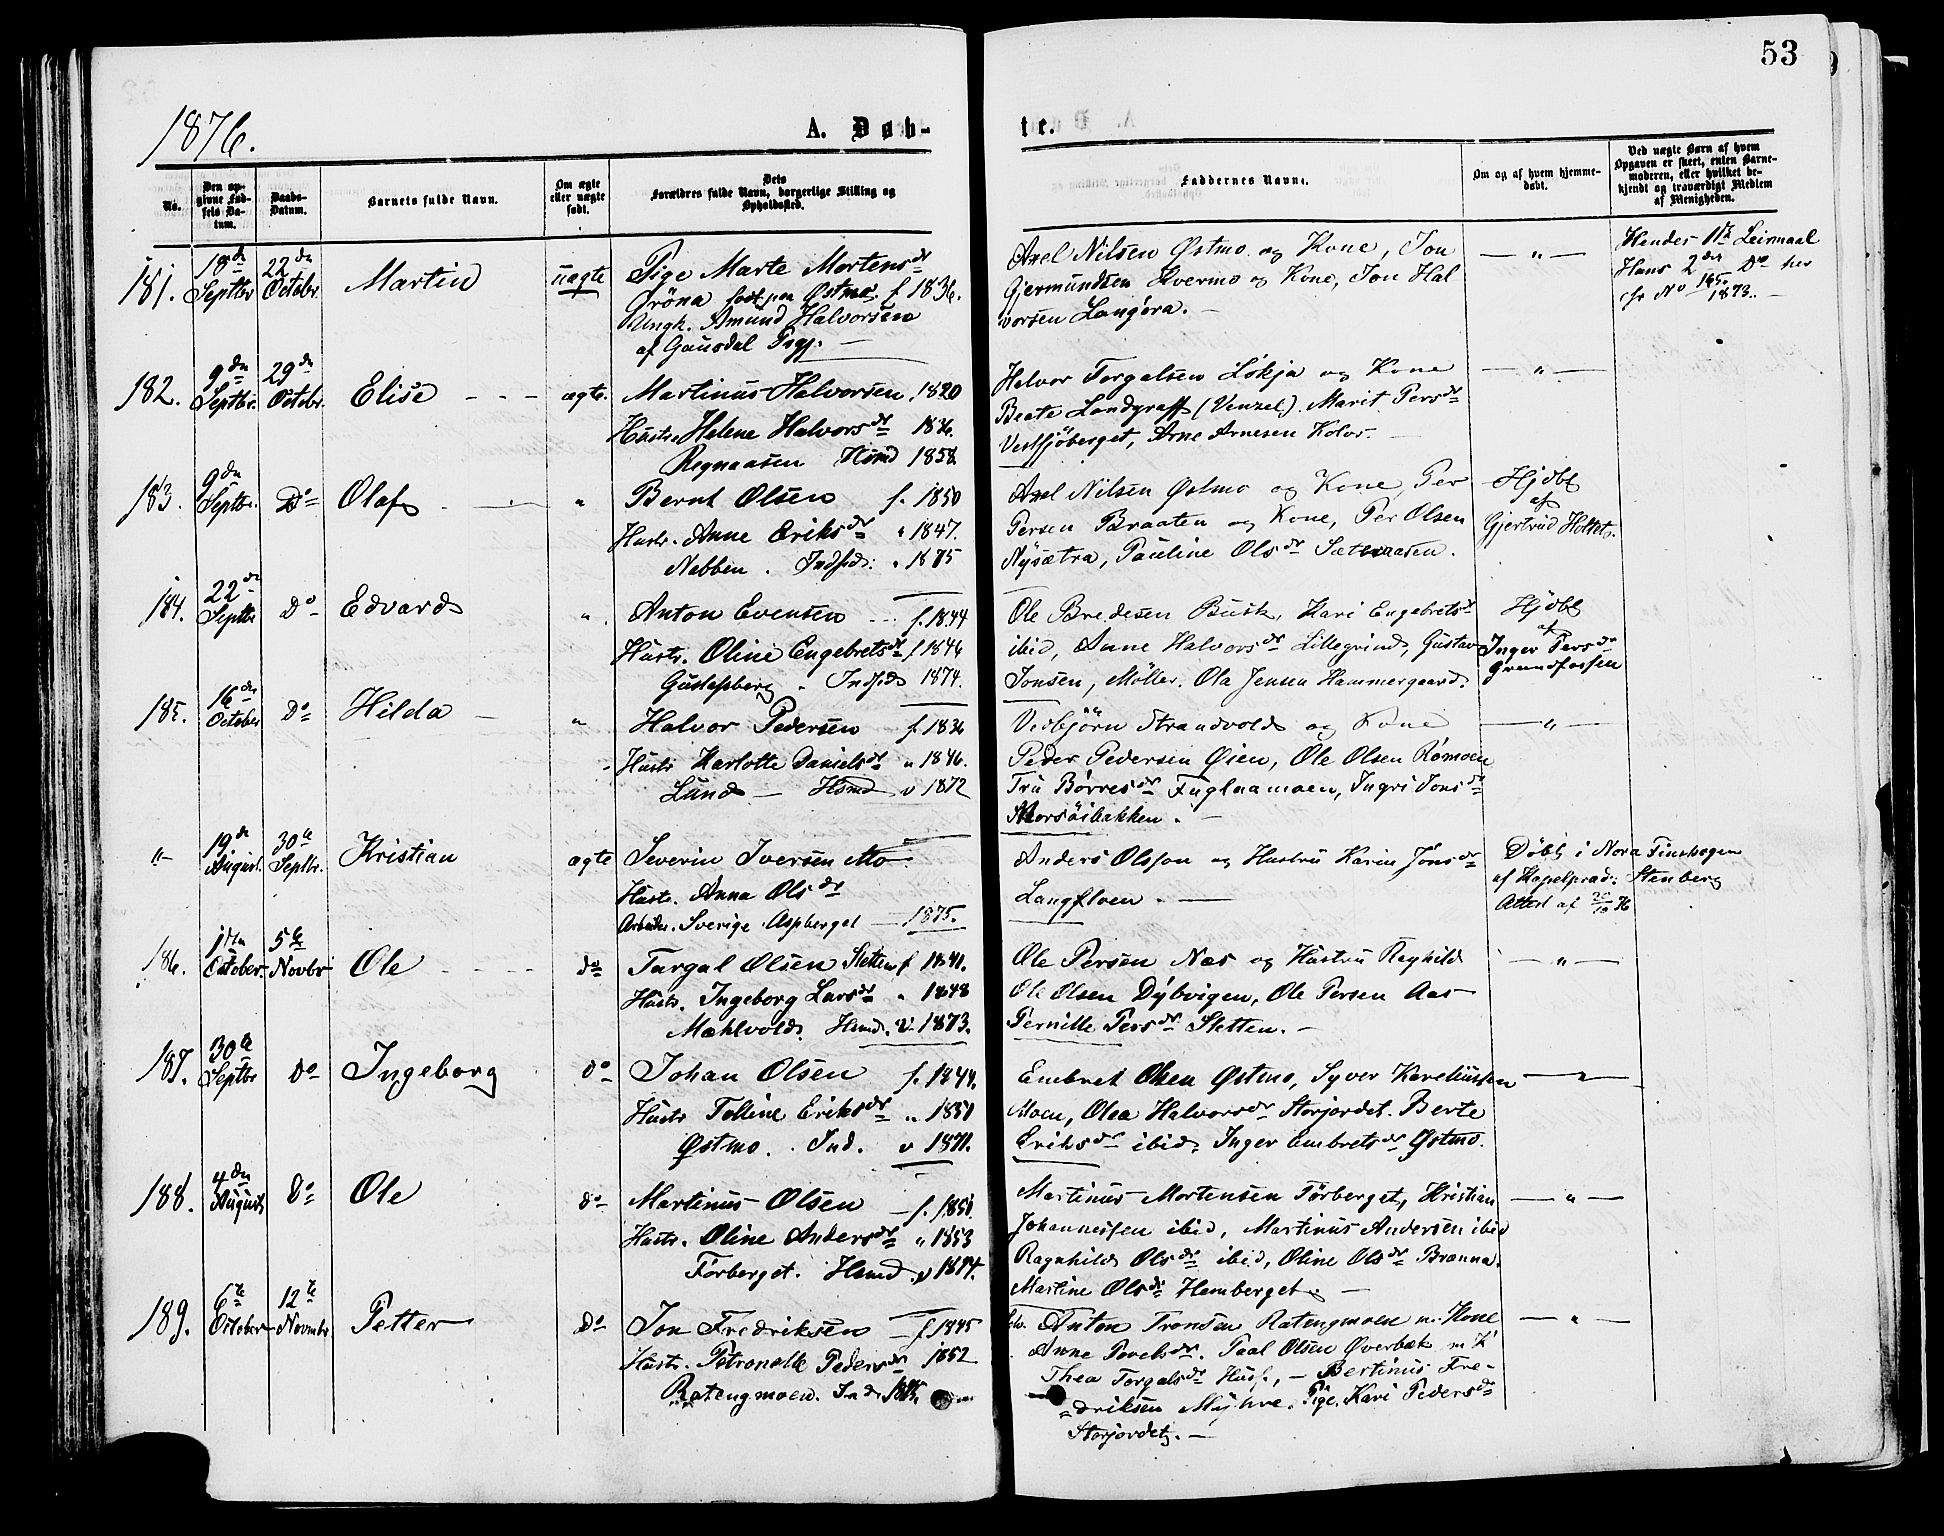 53
1876.
A. Døb-
te.
No.
Den op-
givne Fød-
sels Da-
tum.
Daabs-
Datum.
Barnets fulde Navn.
Om ægte
eller uægte
født.
Dets
Forældres fulde Navn, borgerlige Stilling og
Opholdssted.
Faddernes Navne.
Om og af hvem hjemme-
døbt.
Ved uægte Børn af hvem
Opgaven er skeet, enten Barne-
moderen, eller hvilket be-
kjendt og troværdigt Medlem
af Menigheden.
181.
18de
Septbr
22de
Octobr.
Martin
uægte
Pige Marte Mortensdr
Gröna født paa Østmo. f 1836.
Ungk. Amund Halvorsen
af Gausdal Prgj.
Axel Nilsen Østmo og Kone, Jon
Gjermundsen Kvermo og Kone, Jon Hal
vorsen Langøra.
— " —
Hendes 1te Leirmaal
Hans 2det Do her
cfr No 165. 1873.
182.
9de
Septbr.
29de
Octobr.
Elise
ægte.
Martinus Halvorsen. 1820
Hustr. Helene Halvorsdr 1836.
Regnaasen Hsmd 1858
Halvor Torgalsen Løkja og Kone
Beate Landgraff (Venzel). Marit Persdr
Vestsjöberget, Arne Arnesen Kolos.
— " —
183.
9de
Septbr.
Do
Olaf
"
Bernt Olsen f. 1850
Hustr. Anne Eriksdr " 1847.
Nebben. Indsid: " 1875
Axel Nilsen Østmo og Kone, Per
Persen Braaten og Kone, Per Olsen
Nysætra, Pauline Olsdr Sætreaasen.
Hjdbt
af
Gjertrud Holtet.
184.
22de
Septbr
Do
Edvard
"
Anton Evensen f. 1844
Hustr. Oline Engebretsdr f 1846
Gustafsberg. Indsid 1874.
Ole Bredesen Busk, Kari Engebretsdr
ibid, Anne Halvorsdr Lillegrind, Gustav
Jonsen, Møller. Ola Jensen Hammergaard.
Hjdbt
af
Inger Persdr
Grundfossen
185.
16de
October
Do
Hilda
"
Halvor Pedersen f. 1836
Hustr Karlotte Danielsdr " 1846.
Lund — Hsmd v 1872
Vedbjörn Strandvold og Kone
Peder Pedersen Øien, Ole Olsen Rømoen
Tru Børresdr Fuglaamoen, Ingri Jonsdr
Morsöibakken.
— " —
"
19de
August.
30te
Septbr.
Kristian
ægte
Severin Iversen Mo
Hustr. Anna Olsdr
Arbeider. Sverige Aspberget — 1875.
Anders Olsson og Hustru Karin Jönsdr
Langfloen.
Döbt i Nora Finskogen
af Kapelpræd: Stenberg
Attest af 20/10 76
186.
1ste
October.
5te
Novbr
Ole
do
Torgal Olsen Sletten f 1841.
Hustr. Ingeborg Larsdr " 1848
Mæhlvold, Hsmd. v. 1873.
Ole Persen Næs og Hustru Raghild
Ole Olsen Dybvigen, Ole Persen Aas
Pernille Persdr Sletten.
— " —
187.
30te
Septbr
Do
Ingeborg
do
Johan Olsen f. 1844.
Hustr Tolline Eriksdr " 1851
Østmo. Ind. v 1871.
Embret Olsen Østmo, Syver Kareliussen
Moen, Olea Halvorsdr Storjordet. Berte
Eriksdr ibid, Inger Embretsdr Østmo.
— " —
188.
4de
August
Do
Ole
do
Martinus Olsen f. 1850.
Hustr. Oline Andersdr " 1853
Förberget. Hsmd. v 1874.
Martinus Mortensen Förberget, Kristian
Johannessen ibid, Martinus Andersen ibid
Ragnhild Olsdr ibid, Oline Olsdr Brænna.
Martine Olsdr Hemberget.
— " —
189.
6te
October
12te
Novmbr
Petter
Do
Jon Fredriksen f 1845
Hustr. Petronelle Pedersdr 1852
Ratengmoen. Ind. 1875.
Anton Tronsen Ratengmoen m. Kone
Anne Povelsdr. Paal Olsen Øverbæk m K
Thea Torgalsdr Husf., — Bertinus Fre-
driksen Myhre, Pige Kari Pedersdr
Storjordet.
— " —